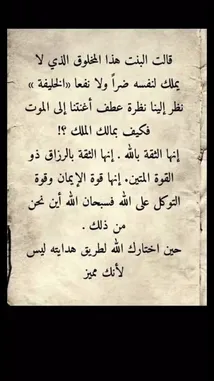 قالت البنت هذا المخلوق الذي لا
يملك لنفسه ضراً ولا نفعا «الخليفة »
نظر إلينا نظرة عطف أغنتنا إلى الموت
فكيف بمالك الملك ؟!
إنها الثقة بالله . إنها الثقة بالرزاق ذو
القوة المتين. إنها قوة الإيمان وقوة
التوكل على الله فسبحان الله أين نحن
من ذلك .
حين اختارك الله لطريق هدايته ليس
لأنك مميز